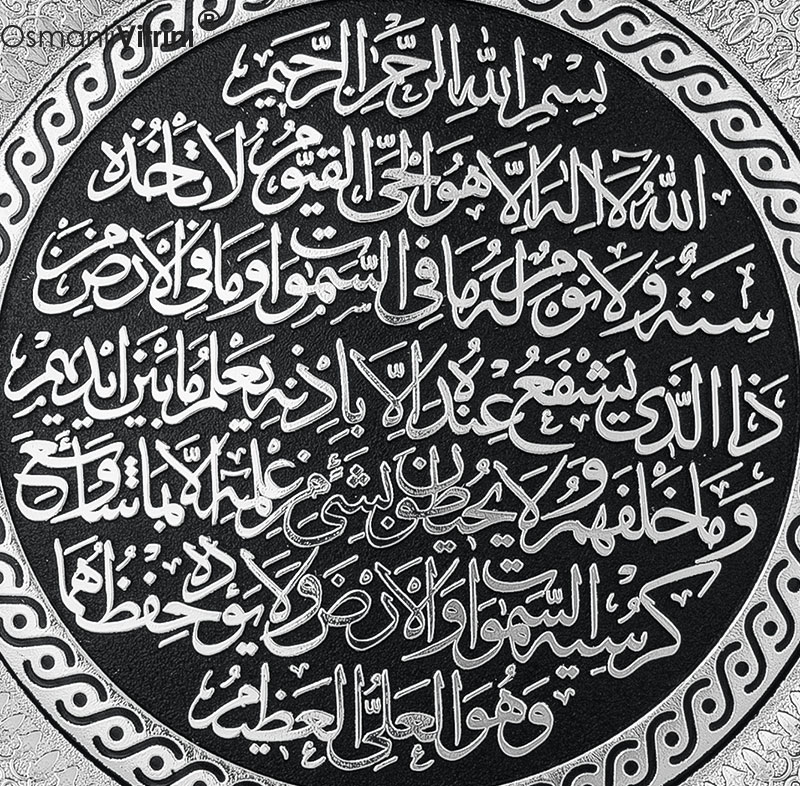 Osmanlı Vitrini ®
بسم الله الرحمن الرحيم
الله لا اله الا هو الحي القيوم لا تأخذه
سنة ولا نوم له ما في السموات وما في الارض من
ذا الذي يشفع عنده الا باذنه يعلم ما بين ايديهم
وما خلفهم ولا يحيطون بشئ من علمه الا بما شاء وسع
كرسيه السموات والارض ولا يؤده حفظهما
وهو العلي العظيم